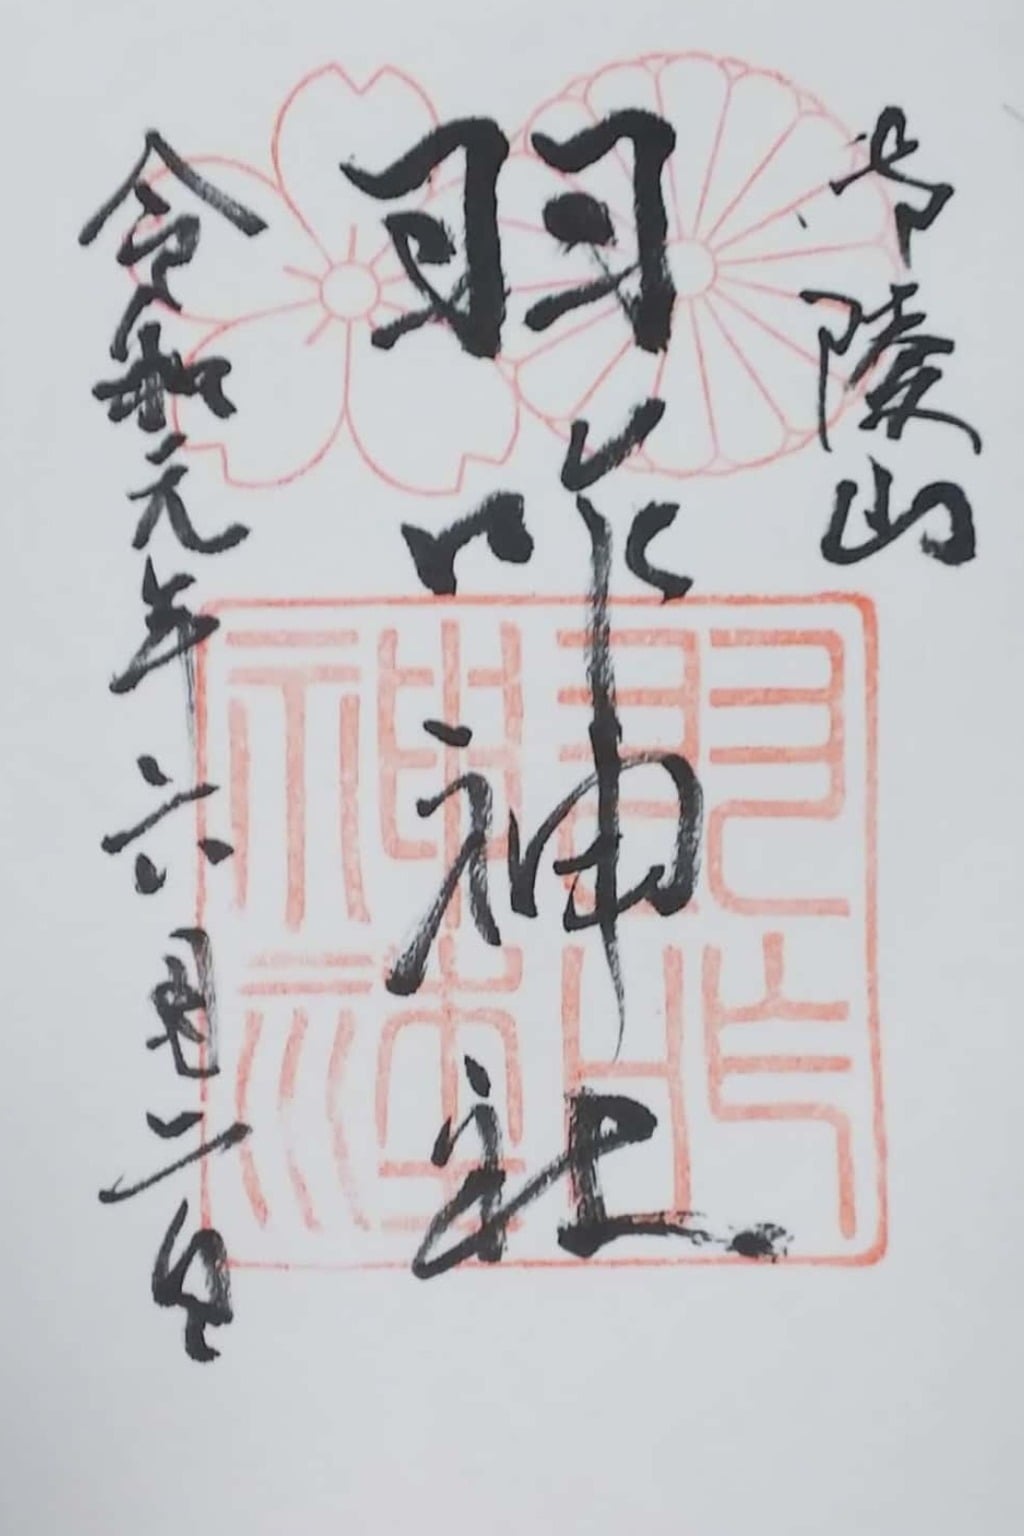 御陵山
羽咋神社
令和元年六月二日
羽咋神社